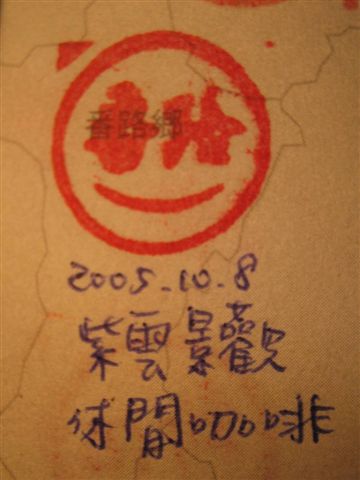 番路鄉
2005.10.8
紫雲景觀
休閒咖啡